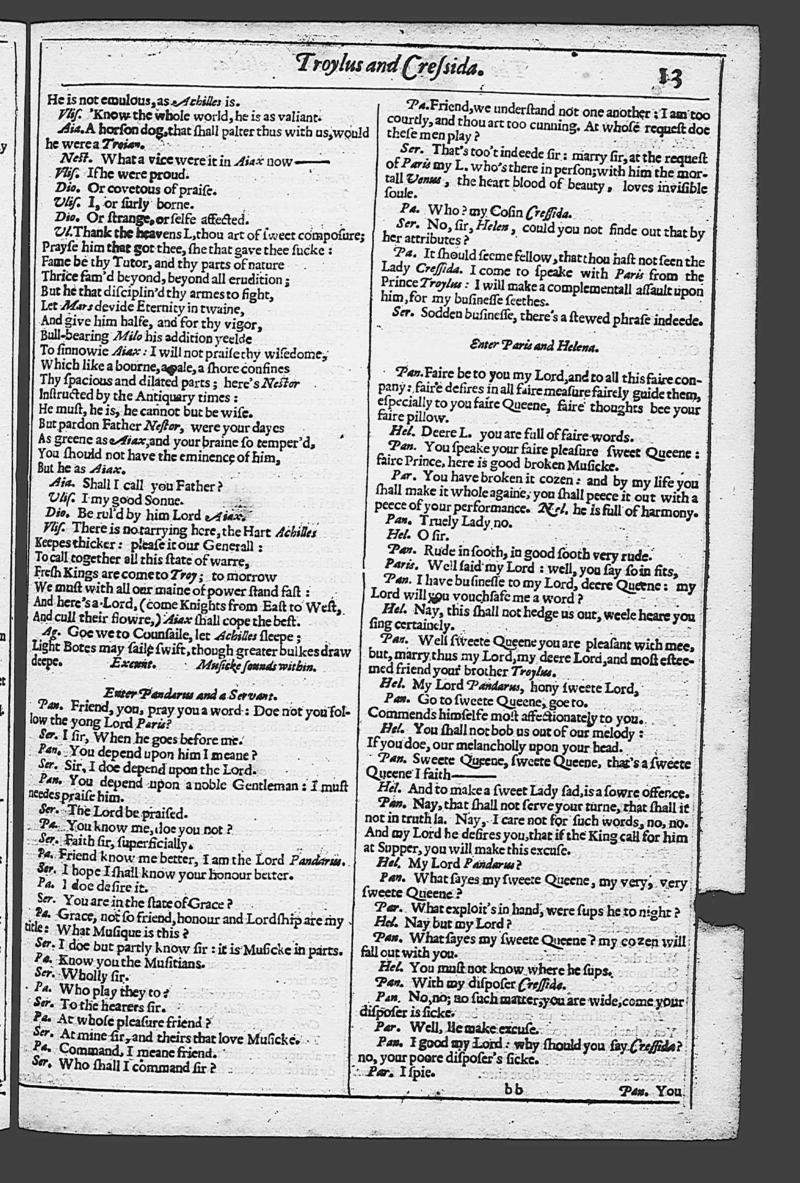 Troylus and Creſsida.
13
He is not emulous, as Achilles is.
Vliſ. 'Know the whole world, he is as valiant.
Aia. A horſon dog, that ſhall palter thus with us, would
he were a Troian.
Neſt. What a vice were it in Aiax now ——
Vliſ. If he were proud.
Dio. Or covetous of praiſe.
Vliſ. I, or ſurly borne.
Dio. Or ſtrange, or ſelfe affected.
Vl. Thank the heavens L, thou art of ſweet compoſure;
Prayſe him that got thee, ſhe that gave thee ſucke:
Fame be thy Tutor, and thy parts of nature
Thrice fam'd beyond, beyond all erudition;
But he that diſciplin'd thy armes to fight,
Let Mars devide Eternity in twaine,
And give him halfe, and for thy vigor,
Bull-bearing Milo his addition yeelde
To ſinnowie Aiax: I will not praiſe thy wiſedome,
Which like a bourne, a pale, a ſhore confines
Thy ſpacious and dilated parts; here's Neſtor
Inſtructed by the Antiquary times:
He muſt, he is, he cannot but be wiſe.
But pardon Father Neſtor, were your dayes
As greene as Aiax, and your braine ſo temper'd,
You ſhould not have the eminence of him,
But he as Aiax.
Aia. Shall I call you Father?
Vliſ. I my good Sonne.
Dio. Be rul'd by him Lord Aiax.
Vliſ. There is no tarrying here, the Hart Achilles
Keepes thicker: pleaſe it our Generall:
To call together all this ſtate of warre,
Freſh Kings are come to Troy; to morrow
We muſt with all our maine of power ſtand faſt:
And here's a Lord, (come Knights from Eaſt to Weſt,
And cull their flowre,) Aiax ſhall cope the beſt.
Ag. Goe we to Counſaile, let Achilles ſleepe;
Light Botes may ſaile ſwift, though greater bulkes draw
deepe. Exeunt. Muſicke ſounds within.
Enter Pandarus and a Servant.
Pan. Friend, you, pray you a word: Doe not you fol-
low the yong Lord Paris?
Ser. I ſir, When he goes before me.
Pan. You depend upon him I meane?
Ser. Sir, I doe depend upon the Lord.
Pan. You depend upon a noble Gentleman: I muſt
needes praiſe him.
Ser. The Lord be praiſed.
Pa. You know me, doe you not?
Ser. Faith ſir, ſuperficially.
Pa. Friend know me better, I am the Lord Pandarus.
Ser. I hope I ſhall know your honour better.
Pa. I doe deſire it.
Ser. You are in the ſtate of Grace?
Pa. Grace, not ſo friend, honour and Lordſhip are my
title: What Muſique is this?
Ser. I doe but partly know ſir: it is Muſicke in parts.
Pa. Know you the Muſitians.
Ser. Wholly ſir.
Pa. Who play they to?
Ser. To the hearers ſir.
Pa. At whoſe pleaſure friend?
Ser. At mine ſir, and theirs that love Muſicke.
Pa. Command, I meane friend.
Ser. Who ſhall I command ſir?
Pa. Friend, we underſtand not one another: I am too
courtly, and thou art too cunning. At whoſe requeſt doe
theſe men play?
Ser. That's too't indeede ſir: marry ſir, at the requeſt
of Paris my L. who's there in perſon; with him the mor-
tall Venus, the heart blood of beauty, loves inviſible
ſoule.
Pa. Who? my Coſin Creſſida.
Ser. No, ſir, Helen, could you not finde out that by
her attributes?
Pa. It ſhould ſeeme fellow, that thou haſt not ſeen the
Lady Creſſida. I come to ſpeake with Paris from the
Prince Troylus: I will make a complementall aſſault upon
him, for my buſineſſe ſeethes.
Ser. Sodden buſineſſe, there's a ſtewed phraſe indeede.
Enter Paris and Helena.
Pan. Faire be to you my Lord, and to all this faire com-
pany: faire deſires in all faire meaſure fairely guide them,
eſpecially to you faire Queene, faire thoughts bee your
faire pillow.
Hel. Deere L. you are full of faire words.
Pan. You ſpeake your faire pleaſure ſweet Queene:
faire Prince, here is good broken Muſicke.
Par. You have broken it cozen: and by my life you
ſhall make it whole againe, you ſhall peece it out with a
peece of your performance. Nel. he is full of harmony.
Pan. Truely Lady no.
Hel. O ſir.
Pan. Rude in ſooth, in good ſooth very rude.
Paris. Well ſaid my Lord: well, you ſay ſo in fits,
Pan. I have buſineſſe to my Lord, deere Queene: my
Lord will you vouchſafe me a word?
Hel. Nay, this ſhall not hedge us out, weele heare you
ſing certainely.
Pan. Well ſweete Queene you are pleaſant with mee,
but, marry thus my Lord, my deere Lord, and moſt eſtee-
med friend your brother Troylus.
Hel. My Lord Pandarus, hony ſweete Lord,
Pan. Go to ſweete Queene, goe to.
Commends himſelfe moſt affectionately to you.
Hel. You ſhall not bob us out of our melody:
If you doe, our melancholly upon your head.
Pan. Sweete Queene, ſweete Queene, that's a ſweete
Queene I faith ——
Hel. And to make a ſweet Lady ſad, is a ſowre offence.
Pan. Nay, that ſhall not ſerve your turne, that ſhall it
not in truth la. Nay, I care not for ſuch words, no, no.
And my Lord he deſires you, that if the King call for him
at Supper, you will make this excuſe.
Hel. My Lord Pandarus?
Pan. What ſayes my ſweete Queene, my very, very
ſweete Queene?
Par. What exploit's in hand, were ſups he to night?
Hel. Nay but my Lord?
Pan. What ſayes my ſweete Queene? my cozen will
fall out with you.
Hel. You muſt not know where he ſups.
Pan. With my diſpoſer Creſſida.
Pan. No, no; no ſuch matter, you are wide, come your
diſpoſer is ſicke.
Par. Well, Ile make excuſe.
Pan. I good my Lord: why ſhould you ſay Creſſida?
no, your poore diſpoſer's ſicke.
Par. I ſpie.
bb
Pan. You